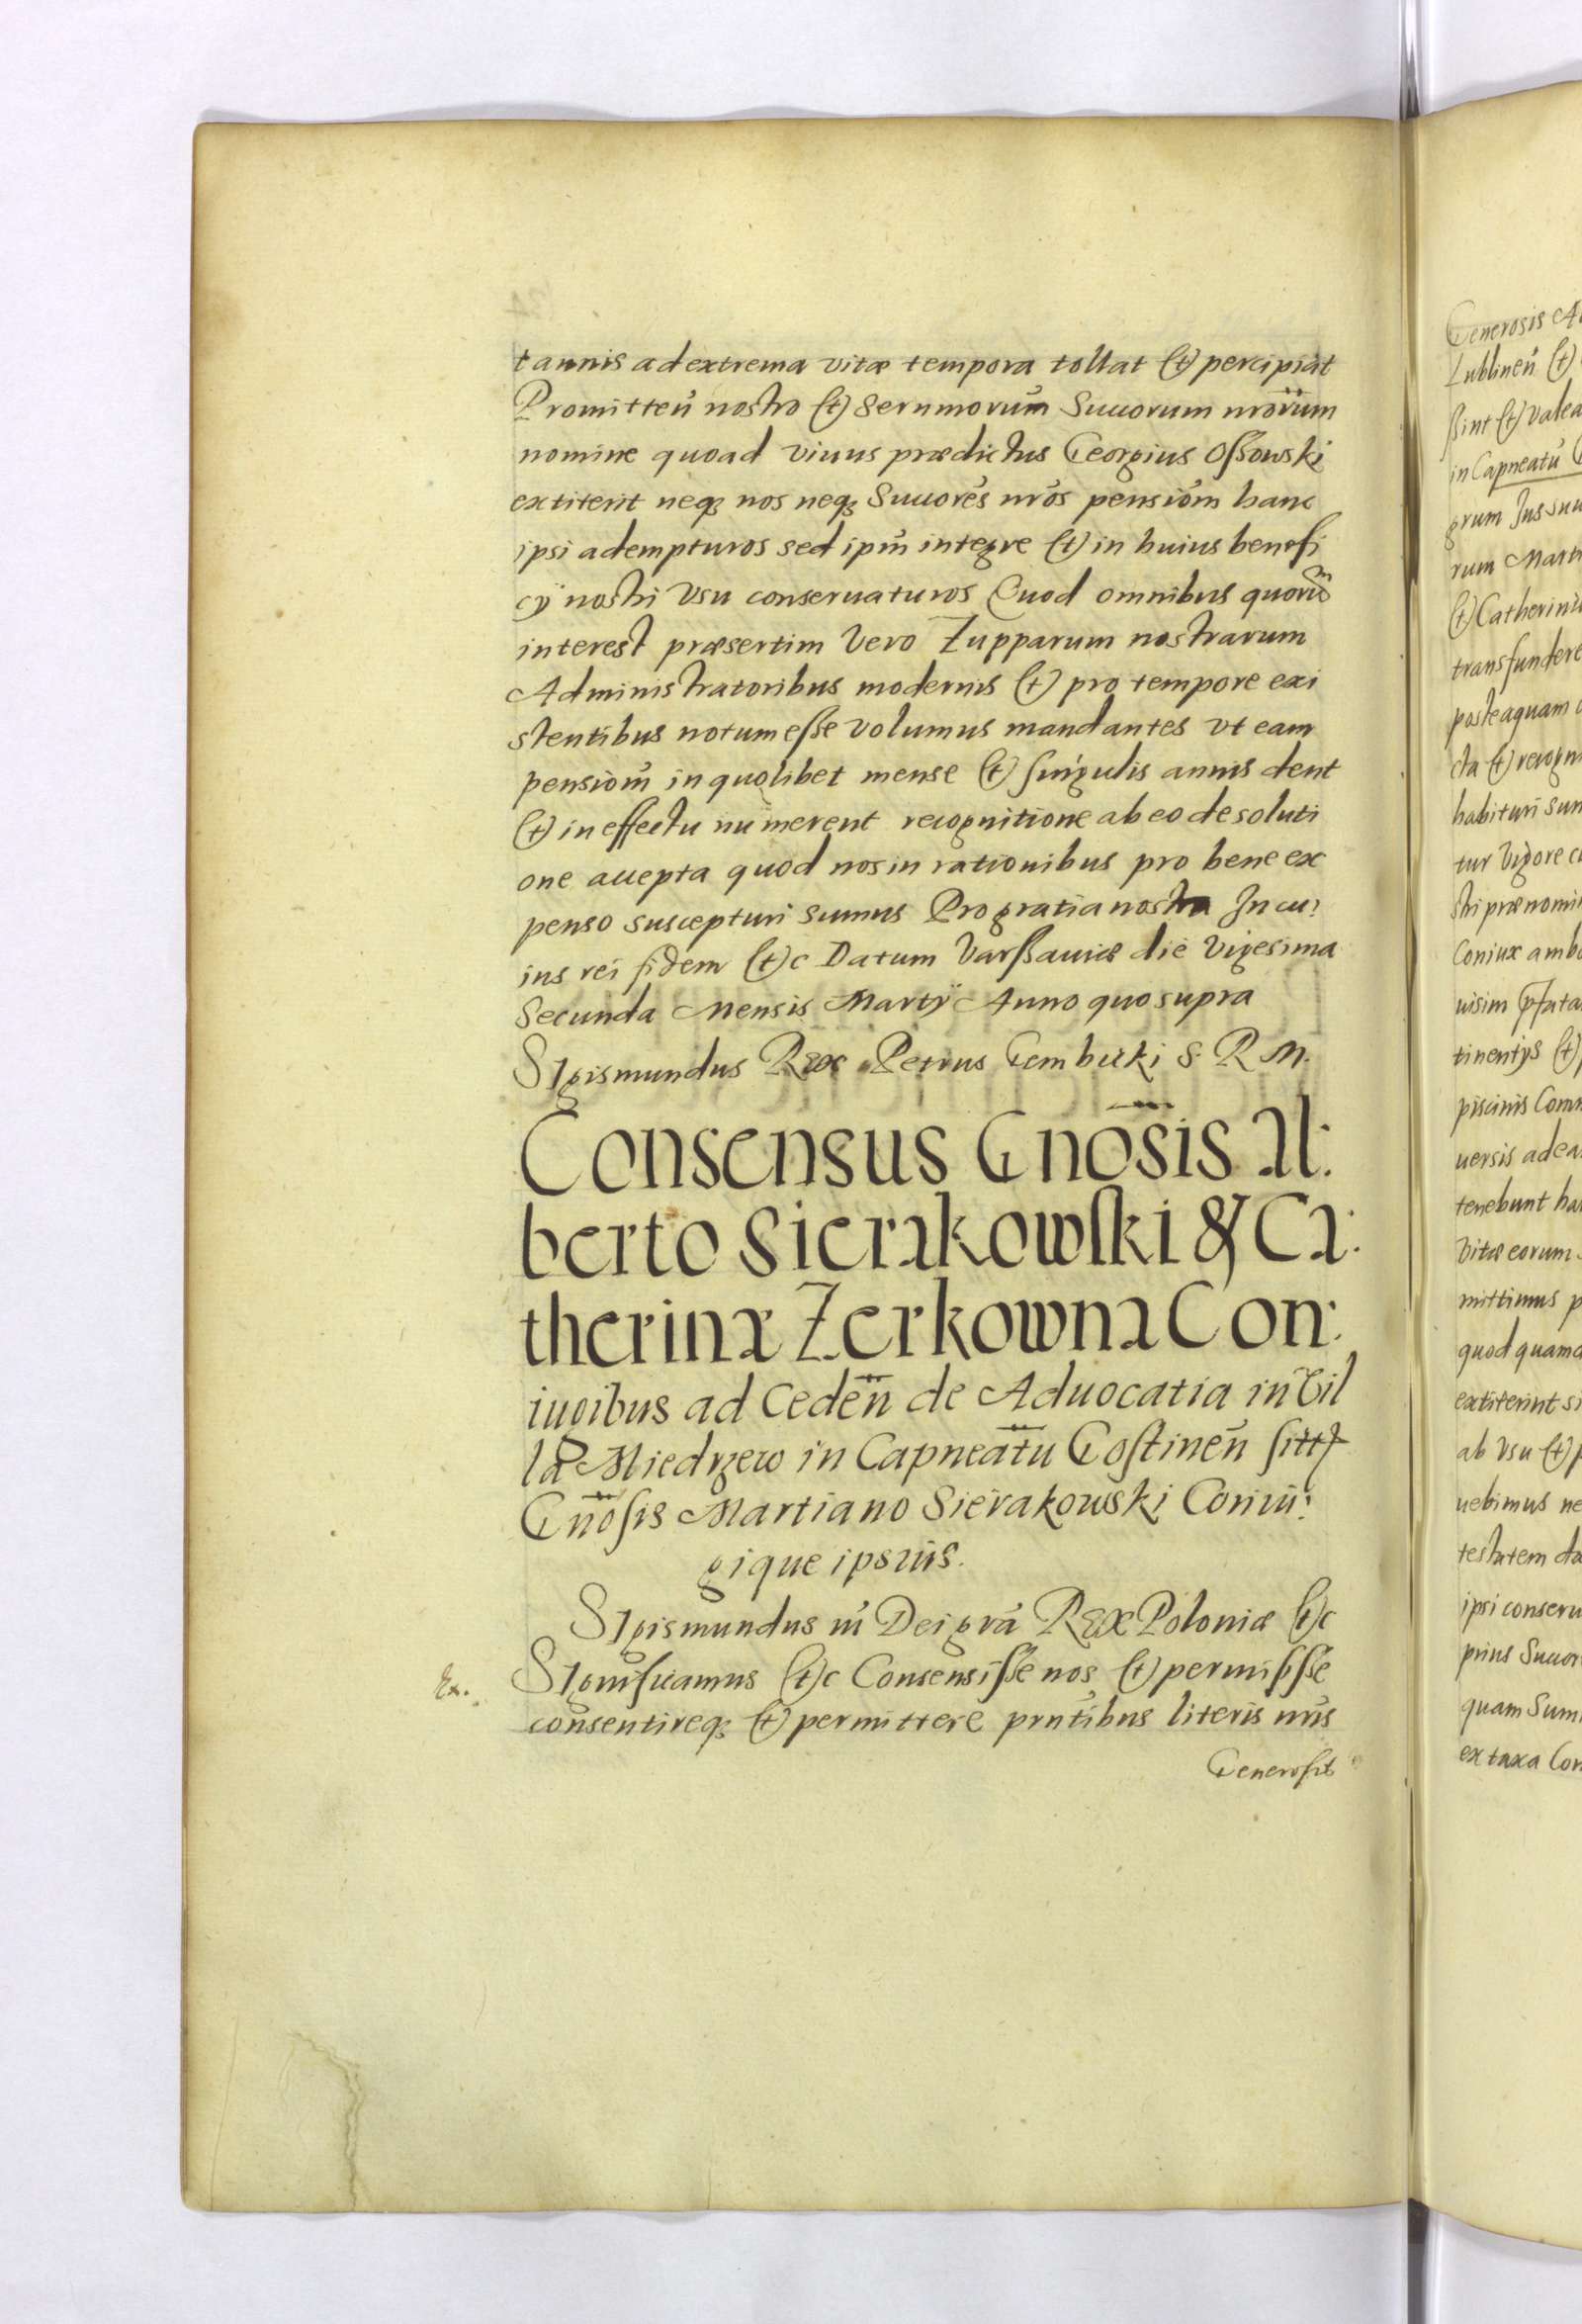 tannis ad extrema vitæ tempora tollat (et) percipiat
Promitten̄ nostro (et) Sernmorum̄ Succorum nrorum
nomine quoad viuus prædictus Georgius Ossowski
extiterit neq3 nos neq3 Succorēs nrōs pensiōm hanc
ipsi adempturos sed ipm̄ integre (et) in huius benefi
cÿ nostri Vsu conseruaturos Quod omnibus quorū
interest præsertim Vero Zupparum nostrarum
Administratoribus modernis (et) pro tempore exi
stentibus notum esse volumus mandantes vt eam
pensiom̄ in quolibet mense (et) singulis annis dent
(et) in effectu numerent recognitione ab eo de soluti
one accepta quod nos in rationibus pro bene ex
penso suscepturi sumus Pro gratia nostra In cu:
ius rei fidem (et)c Datum Varssauiæ die Vigesima
Secunda Mensis Martÿ Anno quo supra
SIgismundus Rex Petrus Gembicki S. R M.
Consensus Gnōsis Al:
berto Sierakowski & Ca:
therinæ Zerkowna Con:
iugibus ad Ceden̄ de Aduocatia in Vil
la Miedrzew in Capneātu Gostinen̄
Gnōsis Martiano Sierakowski Coniu:
gique ipsius.
SIgismundus iii Dei grā Rex Poloniæ (et)c
Ex. SIgnificamus (et)c Consensisse nos (et) permisisse
consentireq3 (et) permittere prntibus literis nris
Generosis
Generosis A
Lublinen̄ (et)
sint (et) valea
in Capneatū G
grum Jus suu
rum Marti
(et) Catherinæ
transfundere
posteaquam
cta (et) recogn
habituri sun
tur Vigore c
stri prænomi
Coniux ambo
uisim
tinentÿs (et)
piscinis Com
uersis ad ea
tenebunt ha
Vitæ eorum
mittimus p
quod quamd
extiterint si
ab Vsu (et) p
uebimus ne
testatem da
ipsi conseru
prius Succor
quam Sum
ex taxa Con